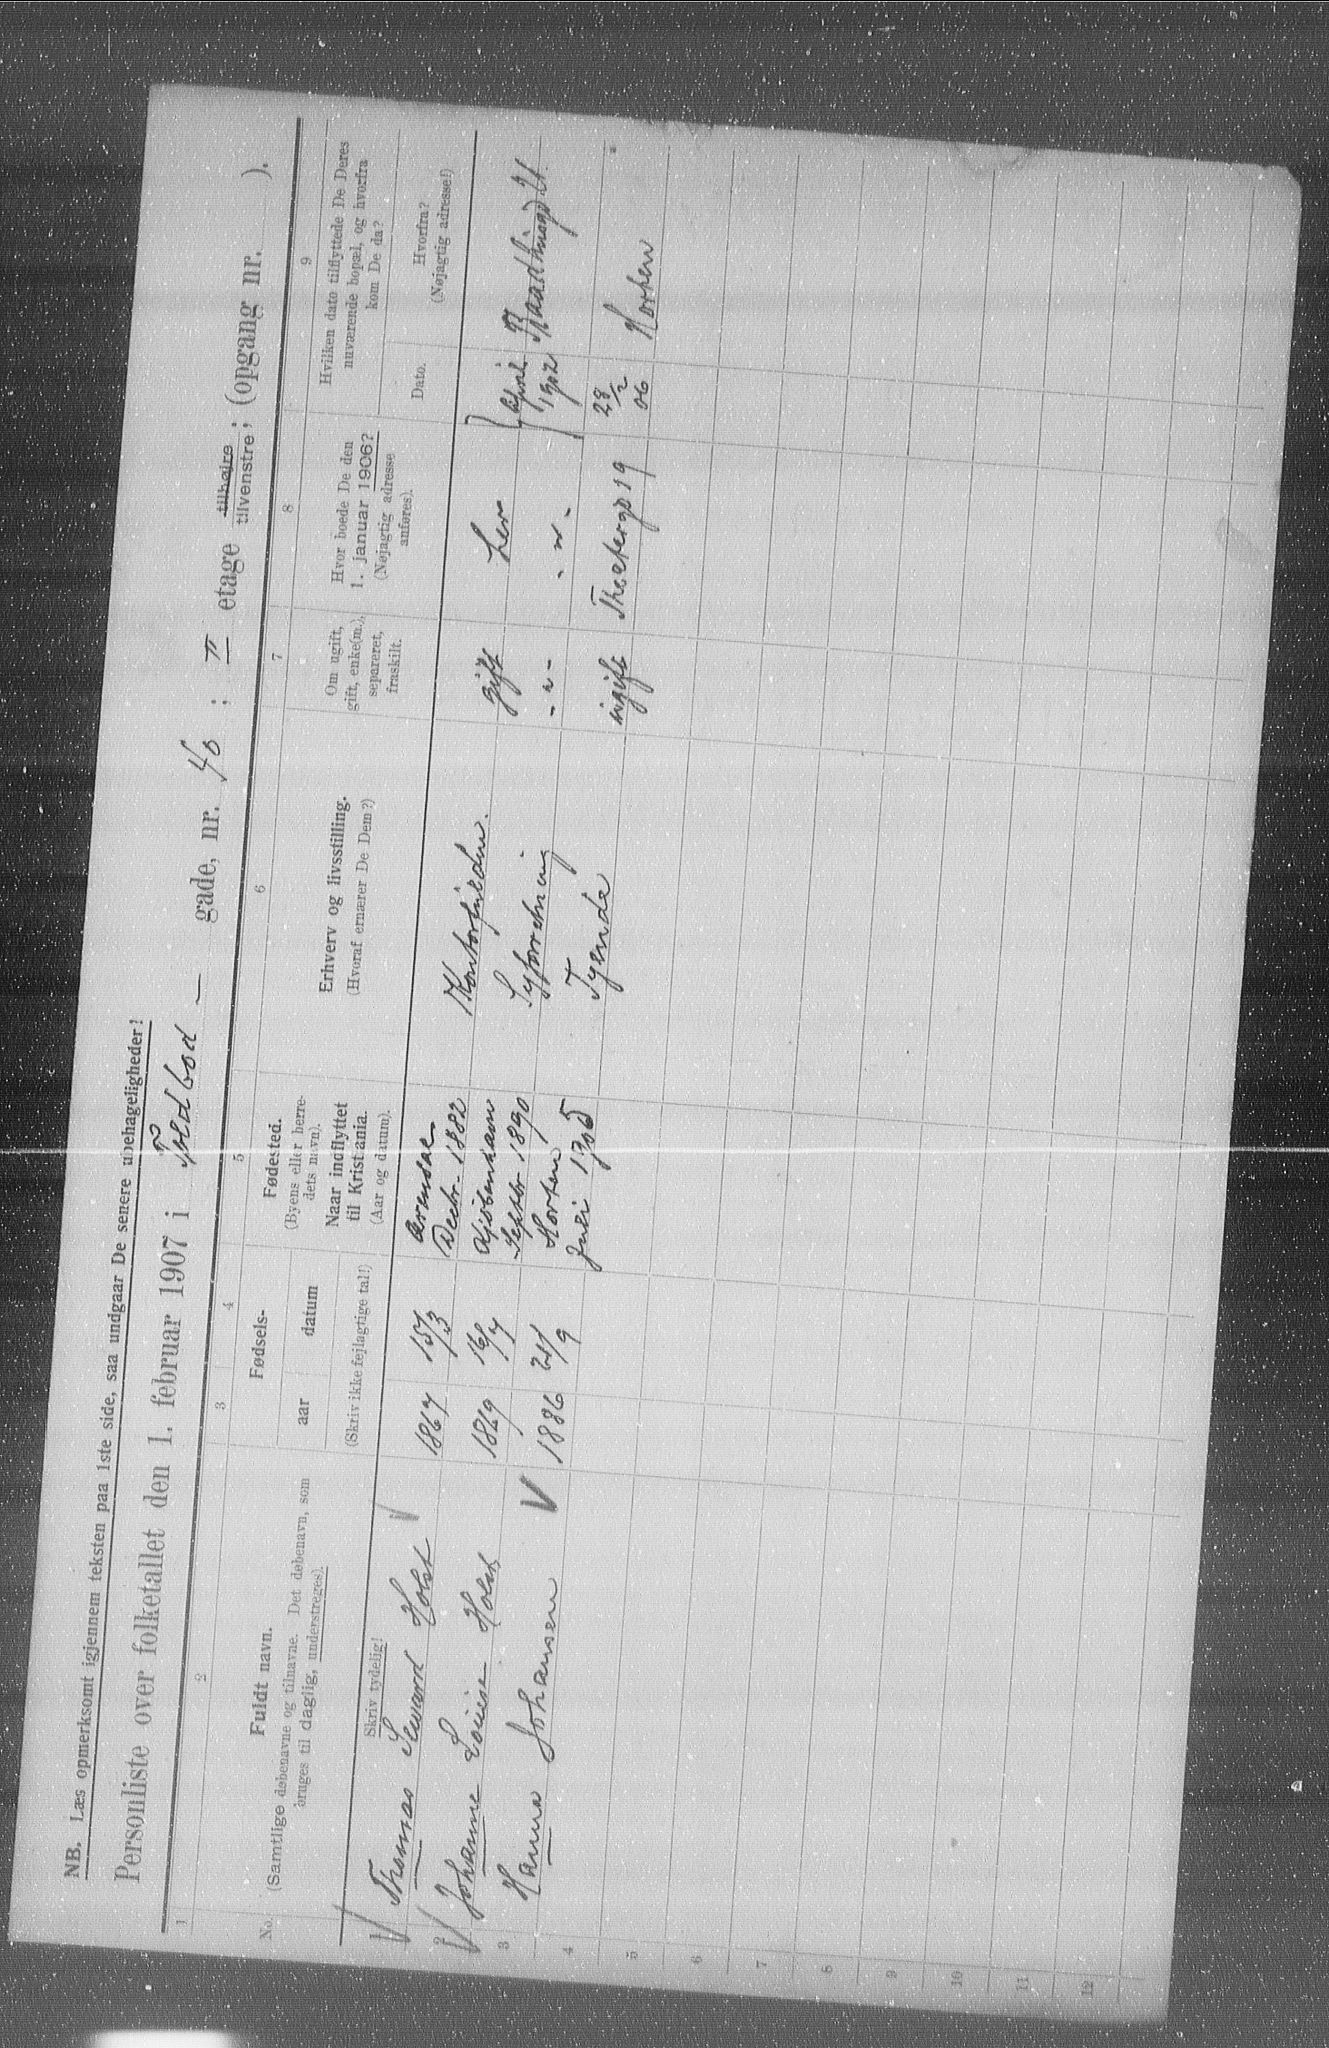 NB. Læs opmerksomt igjennem teksten paa 1ste side, saa undgaar De senere ubehageligheder!
Personliste over folketallet den 1. februar 1907 i Toldbod - gade, nr. 40 ; II etage tilhøire tilvenstre ; (opgang nr. ).
1 2 3 4 5 6 7 8 9
No.
Fuldt navn.
(Samtlige døbenavne og tilnavne. Det døbenavn, som
bruges til daglig, understreges).
Skriv tydelig!
Fødsels-
aar datum
(Skriv ikke fejlagtige tal!)
Fødested.
(Byens eller herre-
dets navn).
Naar indflyttet
til Kristiania.
(Aar og datum).
Erhverv og livsstilling.
(Hvoraf ernærer De Dem?)
Om ugift,
gift, enke(m.),
separeret,
fraskilt.
Hvor boede De den
1. januar 1906?
(Nøjagtig adresse
anføres).
Hvilken dato tilflyttede De Deres
nuværende bopæl, og hvorfra
kom De da?
Dato.
Hvorfra?
(Nøjagtig adresse!)
1 Thomas Holst 1867 15/3 Arendal
Decbr. 1882 gift her April 1902 Raadhusgd 21.
2 Johanne Louise Holst 1869 16/7 Kjøbenhavn
Septbr 1890 Syforretning - " - - " -
3 Hanna Johansen 1886 21/9 Horten
Juli 1905 Tjende ugift Theatergd 19 28/2 06 Horten
4
5
6
7
8
9
10
11
12